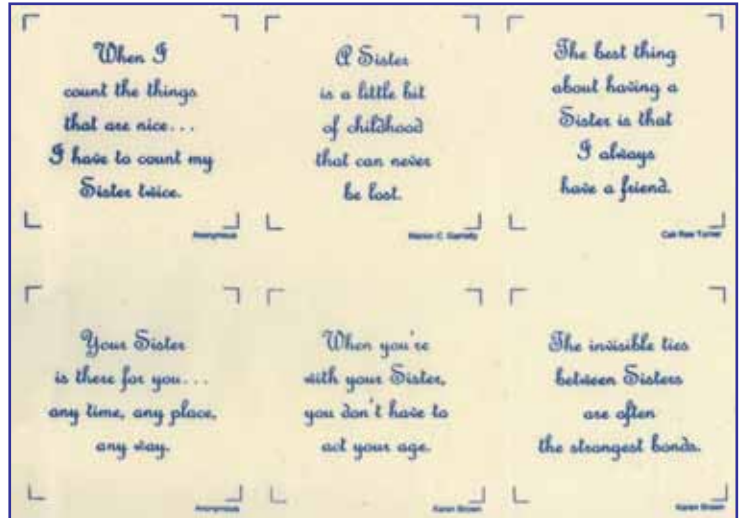 When I
count the things
that are nice...
I have to count my
Sister twice.
Anonymous
A Sister
is a little bit
of childhood
that can never
be lost.
Marion C. Garretty
The best thing
about having a
Sister is that
I always
have a friend.
Cali Rae Turner
Your Sister
is there for you...
any time, any place,
any way.
Anonymous
When you're
with your Sister,
you don't have to
act your age.
Karen Brown
The invisible ties
between Sisters
are often
the strongest bonds.
Karen Brown